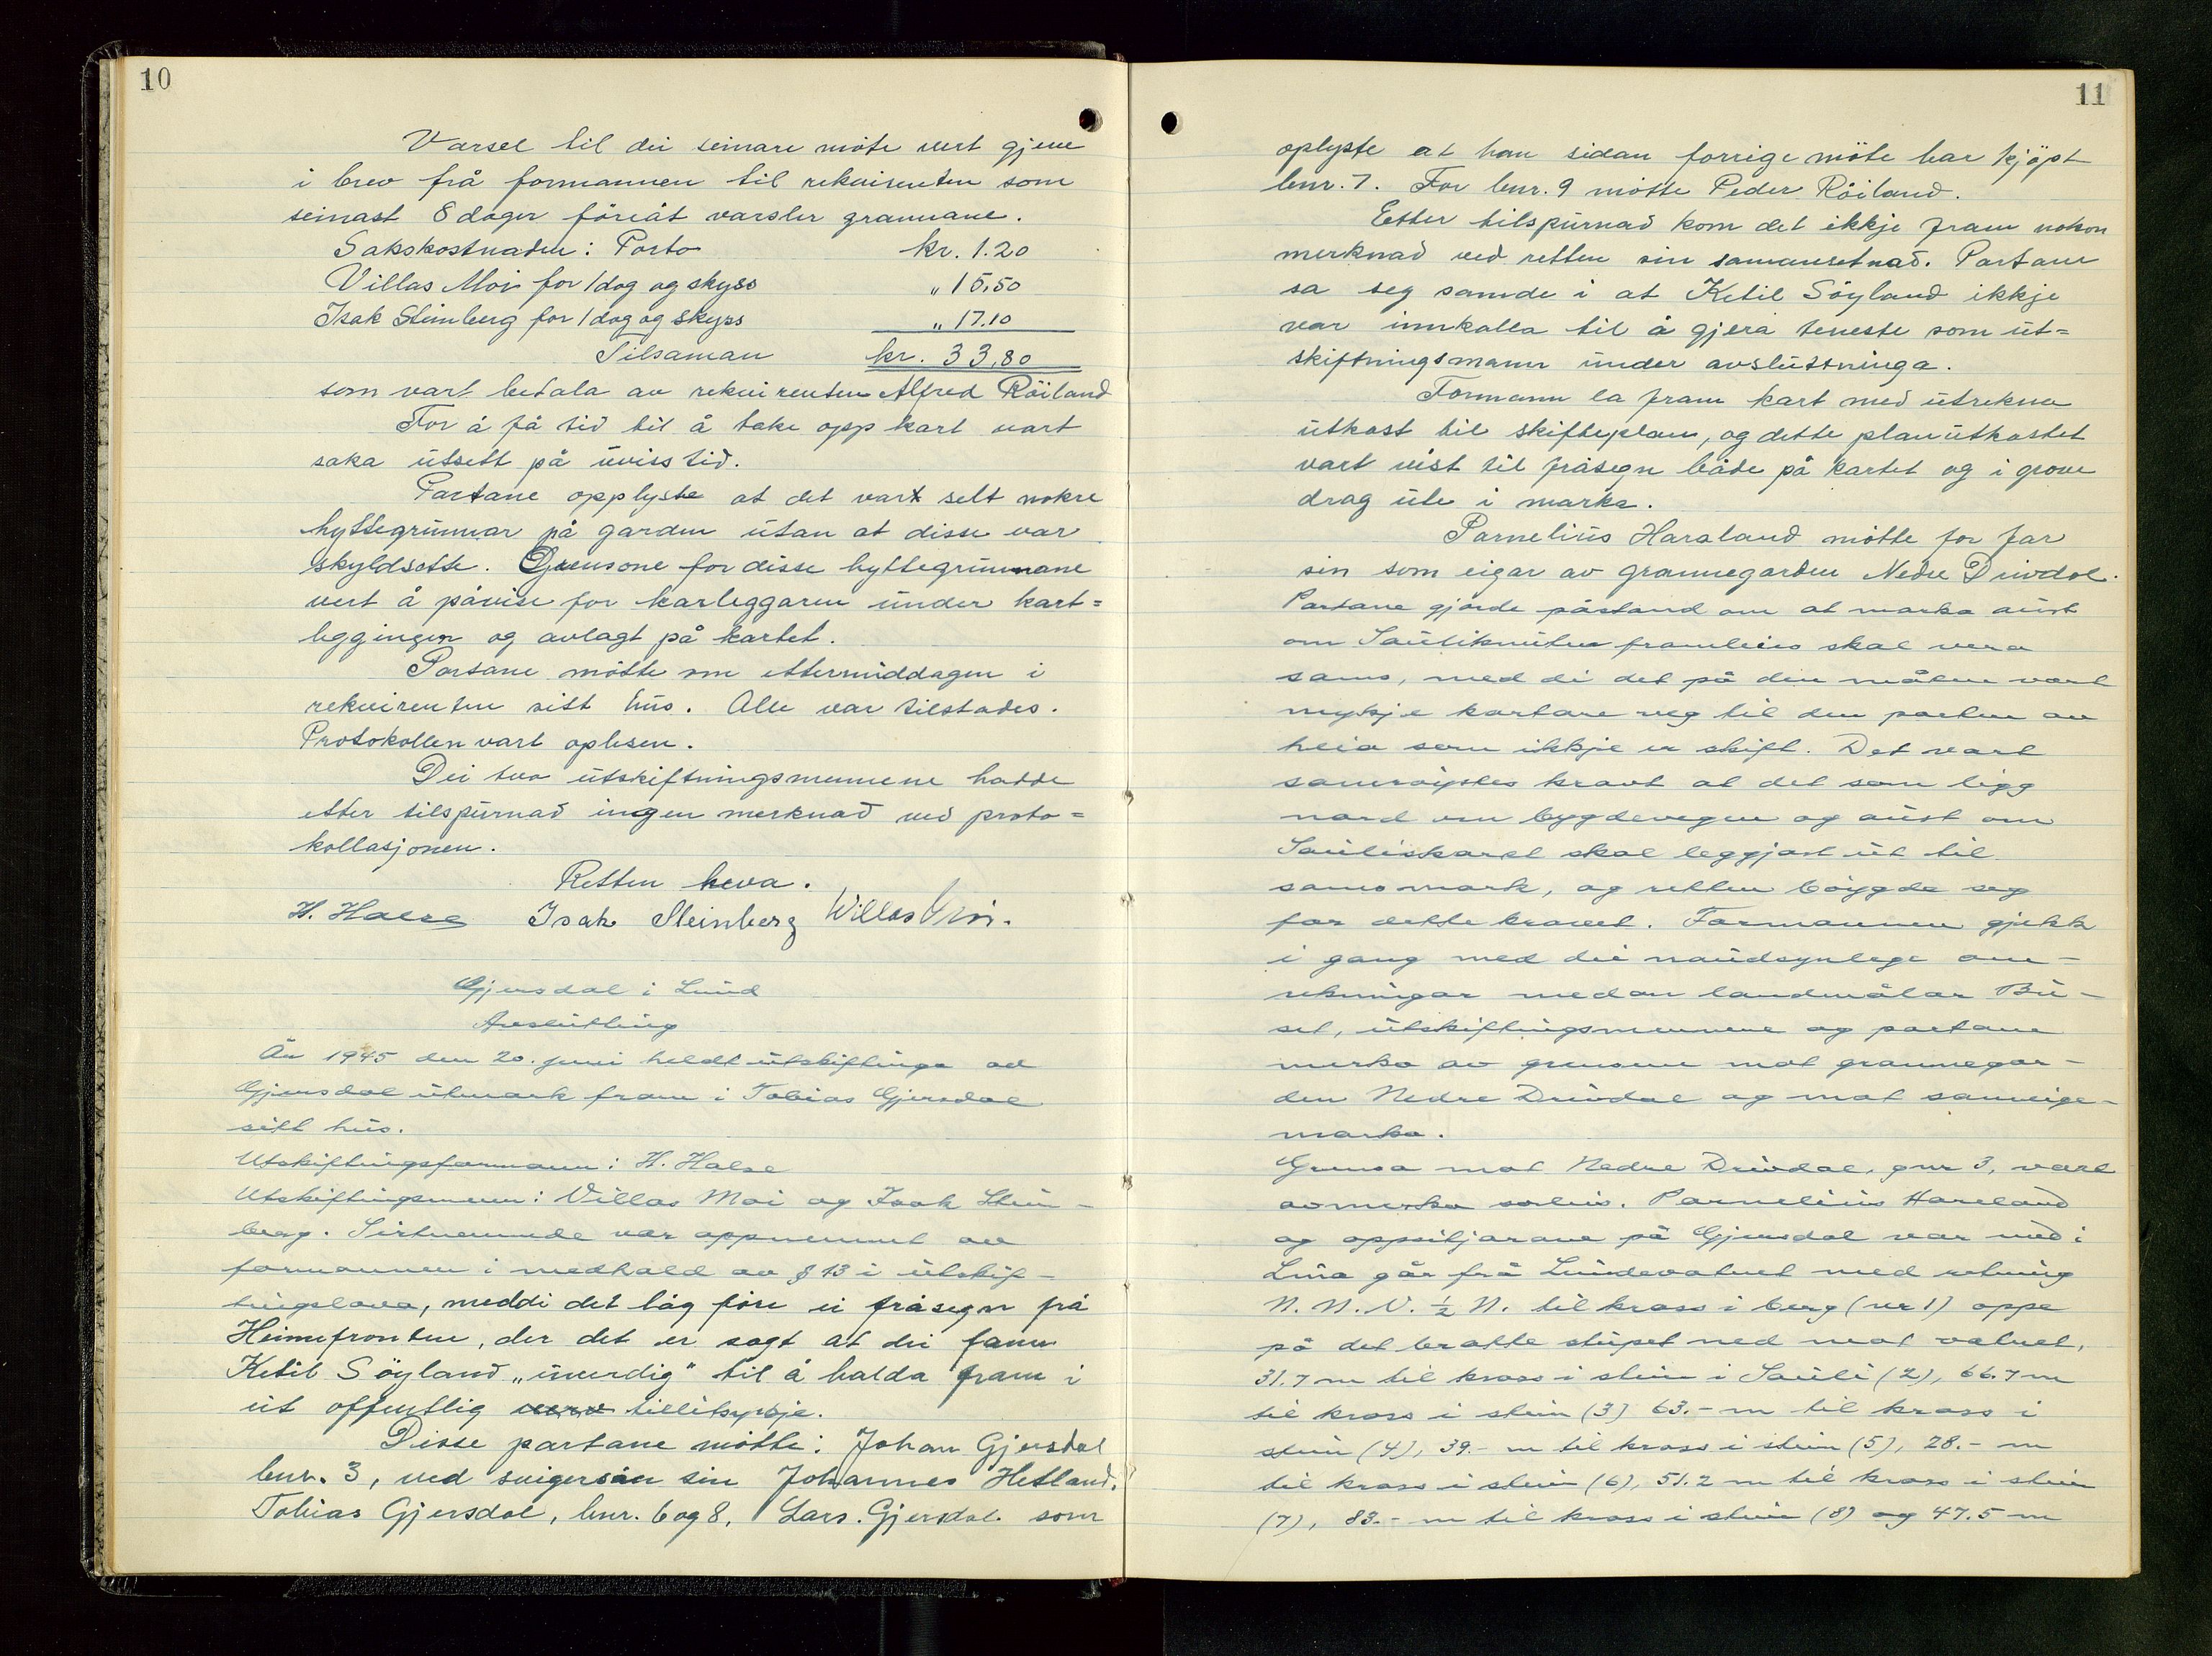 10
Varsel til dei seinare møte vert gjeve
i brev frå formannen til rekvirenten som
seinast 8 dager föreåt varsler grannane.
Sakskostnaden: Porto kr. 1.20
Villas Moi for 1 dag og skyss " 15,50
Isak Steinberg for 1 dag og skyss " 17.10
Tilsaman kr. 33,80
som vart betala av rekvirenten Alfred Röiland
For å få tid til å take opp kart vart
saka utsett på uviss tid.
Partane opplyste at det vart selt nokre
hyttegrunnar på garden utan at disse var
skyldsette. Grensone for disse hyttegrunnane
vert å påvise for karleggaren under kart=
leggingen og avlagt på kartet.
Partane møtte om ettermiddagen i
rekvirenten sitt hus. Alle var tilstades.
Protokollen vart oplesen.
Dei two utskiftningsmennene hadde
etter tilspurnad ingen merknad ved proto=
kollasjonen.
Retten heva.
H. Halse Isak Steinberg Willas Moi.
Gjersdal i Lund
Avslutting
År 1945 den 20. juni heldt utskiftinga av
Gjersdal utmark fram i Tobias Gjersdal
sitt hus.
Utskiftingsformann: H. Halse
Utskiftingsmenn: Villas Moi og Isak Stein-
berg. Sistnemnde var oppnemnt av
formannen i medhald av § 13 i utskif-
tingslova, meddi det låg føre ei fråsegn frå
Heimefronten, der det er sagt at dei fann
Ketil Söyland „uverdig" til å halda fram i
eit offentlig verv tillitsyrkje.
Disse partane møtte: Johan Gjersdal
bnr. 3, ved svigerson sin Johannes Hetland.
Tobias Gjersdal, bnr. 6 og 8, Lars. Gjersdal. som
11
oplyste at han sidan forrige möte har kjöpt
bnr. 7. For bnr. 9 møtte Peder Röiland.
Etter tilspurnad kom det ikkje fram nokon
merknad ved retten sin samansetnad. Partane
sa seg samde i at Ketil Söyland ikkje
var innkalla til å gjera teneste som ut=
skiftningsmann under avslutninga.
Formann la fram kart med utrekna
utkast til skifteplan, og dette planutkastet
vart vist til fråsegn både på kartet og i grove
drag ute i marka.
Parnelius Haraland møtte for far
sin som eigar av grannegarden Nedre Drivdal.
Partane gjorde påstand om at marka aust
om Sauliknuten framleies skal vera
sams, med di det på den måten vart
mykje kortare veg til den parten av
heia som ikkje er skift. Det vart
samrøystes kravt at det som ligg
nord om bygdevegen og aust om
Sauliskaret skal leggjast ut til
sams mark, og retten bøygde seg
for dette kravet. Formannen gjekk
i gang med dei naudsynlege om-
rekningar medan landmålar Bu-
set, utskiftingsmennene og partane
merka av grensene mot grannegar-
den Nedre Drivdal og mot sameige-
marka.
Grensa mot Nedre Drivdal, gnr 3, vart
avmerka soleis. Parnelius Hareland
og oppsitjarane på Gjersdal var med i
Lina går frå Lundevatnet med retning
N. N. V. ½ N. til kross i berg (nr 1) oppe
på det bratte stupet ned mot vatnet,
31.7 m til kross i stein i Sauli (2), 66.7 m
til kross i stein (3) 63.- m til kross i
stein (4), 39.- m til kross i stein (5), 28.- m
til kross i stein (6), 51.2 m til kross i stein
(7), 83.- m til kross i stein (8) og 47.5 m